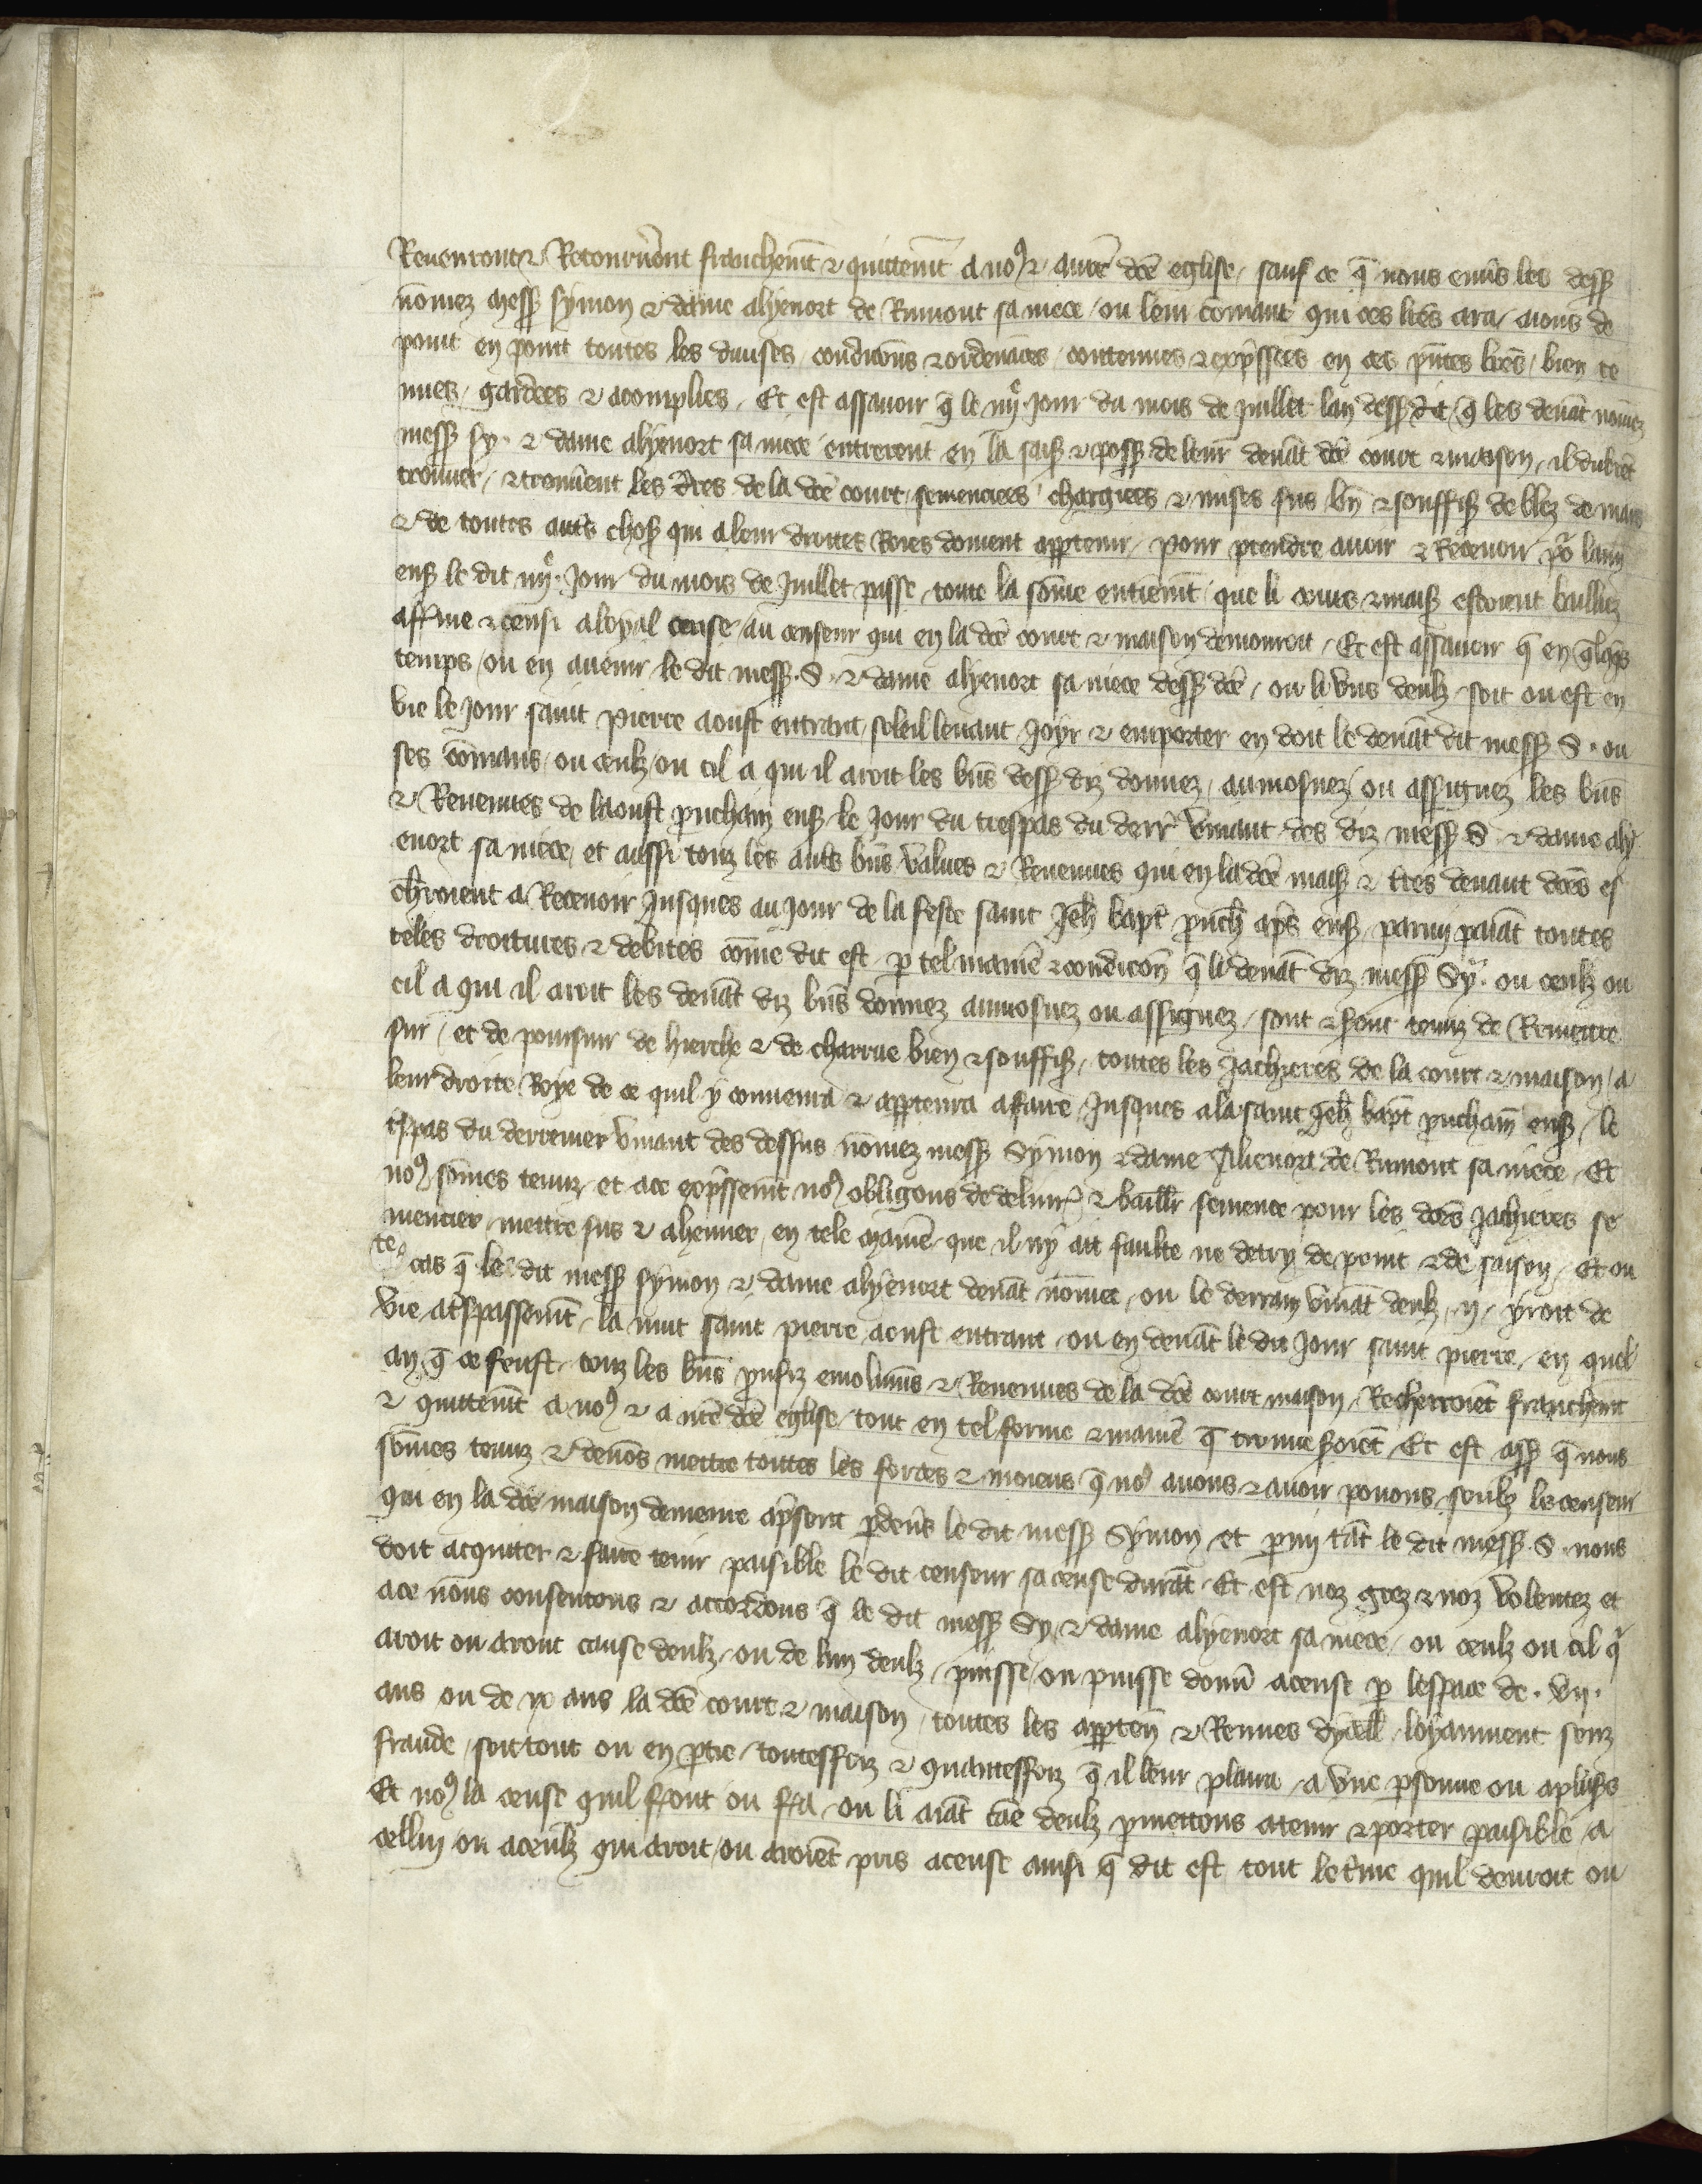 Revenront ⁊ Retournerōnt franchem̄t ⁊ quittem̄t a noꝰ ⁊ a nr̄e dc̄e eglise / sauf ce q̄ nous enūs les dess̄
nōmez mess̄ symon ⁊ dame alyenort de Rumont sa niece / ou leur cōmant qui ces lr̄es ara / aions de
point en point toutes les clauses / condicōns ⁊ ordenāces / contenues ⁊ exp̄ssees en ces p̄ntes lr̄es / bien te
nues / gardees ⁊ acomplies / Et est assauoir q̄ le iiijͤ Jour du mois de Juillet lan dess̄ dit / q̄ les deuāt nōmez
mess̄ sy · ⁊ dame alyenort sa niece entrerent en la sais̄ ⁊ poss̄ de leur deuāt dc̄e court ⁊ maison / il durēt
trouuer / ⁊ trouuerent les t̄res de la dc̄e court / semenciees / chargiees ⁊ mises sus bn̄ ⁊ souffis̄ de blez de mars
⁊ de toutes aut̄s chos̄ qui a leur droites Roies doiuent app̄tenir / pour prendre auoir ⁊ Receuoir po' lan
ens̄ le dit iiijͤ · Jour du mois de Juillet passe / toute la sōme entierem̄t / que li cours ⁊ mais̄ estoient bailliez
afferme ⁊ censi a loyal cense / au censeur qui en la dc̄e court ⁊ maison demouroit / Et est assauoir q̄ en q̄lq̄s
temps / ou en auenir le dit mess̄ · S · ⁊ dame alyenort sa niece dess̄ dc̄e / ou li vns deulz / soit ou est en
vie le Jour saint pierre aoust entrant / soleil leuant / Joyr ⁊ emporter en doit le deuāt dit mess̄ S · ou
ses cōmans / ou ceulz / ou cil a qui il aroit les bn̄s dess̄ diz donnez / aumosnez / ou assignez les bn̄s
⁊ Reuenues de laoust prucham ens̄ / le Jour du trespas du derr̄ viuant des diz mess̄ S · ⁊ dame aly
enort sa niece / et aussi touz les aut̄s bn̄s values ⁊ Reuenues qui en la dc̄e mais̄ ⁊ t̄res deuant dc̄es es
cherroient a Receuoir Jusques au Jour de la feste saint Jeh̄ bapt̄ pruch̄ ap̄s ens̄ / parmi paiāt toutes
teles droitures ⁊ debites cōme dit est / p̄ tel maniē ⁊ condicōn q̄ li deuāt diz mess̄ Sy · ou ceulz ou
cil a qui il aroit les deuāt diz bn̄s donnez aumosnez ou assignez / sont ⁊ s̄ont tenuz de Remettre
sur / et de poursuir de hierche ⁊ de charrue bien ⁊ souffis̄ / toutes les Jachieres de la court ⁊ maison / a
leur droite Roye de ce quil y conuenra ⁊ app̄tenra a faire Jusques a la saint Jeh̄ bapt̄ pruchaīn ens̄ / le
t̄spas du derrenier viuant des dessus nōmez mess̄ Symon ⁊ dame Alienort de Rumont sa niece / Et
noꝰ sōmes tenuz / et a ce exp̄ssem̄t noꝰ obligons de deliur̄ ⁊ baill̄r semence pour les dc̄es Jachieres se
mencier / mettre sus ⁊ ahenner / en tele maniē / que il ny ait faulte ne detry de point ⁊ de saison / Et ou
te cas q̄ le dit mess̄ symon ⁊ dame alyenort deuāt nōmee / ou le derrain viuāt deulz · ij · yroit de
vie a t̄spassem̄t / la nuit saint pierre aoust entrant / ou en deuāt le dit Jour saint pierre / en quel
an q̄ ce feust / touz les bn̄s prufiz emolumēs ⁊ Reuenues de la dc̄e court maison / Recherroiēt franchem̄t
⁊ quittem̄t a noꝰ ⁊ a nr̄e dc̄e eglise / tout en tel forme ⁊ maniē q̄ trouue s̄oiēt / Et est ass̄ q̄ nous
sōmes tenuz ⁊ deuōs mettre toutes les forces ⁊ moiens q̄ noꝰ auons ⁊ auoir pouons / seulz le censeur
qui en la dc̄e maison demeure ap̄sent p̄deūs le dit mess̄ Symon / et p̄mi tāt le dit mess̄ · S · nous
doit acquiter ⁊ faire tenir paisible le dit censeur sa cense durāt / Et est noz grez ⁊ noz volentez et
a ce nous consentons ⁊ accordons q̄ le dit mess̄ Sy · ⁊ dame alyenort sa niece / ou ceulz ou cil q'
aroit ou aront cause deulz / ou de lun deulz / puisse / ou puisse donn̄ a cense p̄ lespace de · vij ·
ans ou de ix ans la dc̄e court ⁊ maison / toutes les app̄ten̄ ⁊ Renues dycell̄ / loyaument senz
fraude / soit tout ou en p̄tie / toutesfoiz ⁊ quantesfoiz q̄ il leur plaira / a vne p̄sonne ou a plus̄s
Et noꝰ la cense quil ffont ou ffa / ou li aiāt cāe deulz p̄mettons a tenir ⁊ porter paisible / a
cellui / ou a ceulz qui aroit / ou aroiēt pris a cense ainsi q̄ dit est tout le t̄me quil deuroit ou